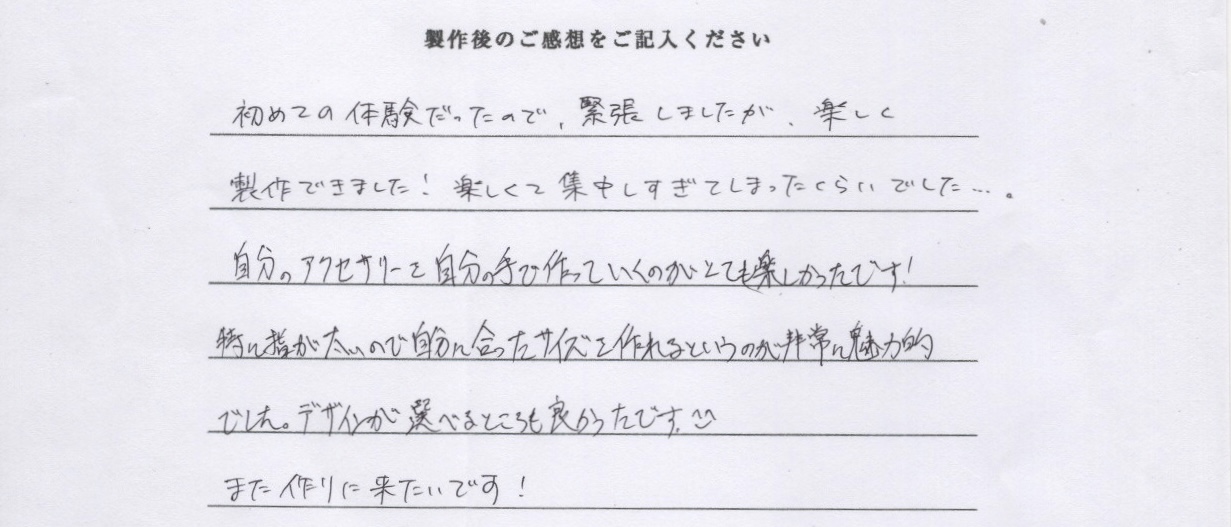 製作後のご感想をご記入ください
初めての体験だったので、緊張しましたが、楽しく
製作できました！楽しくて集中しすぎてしまったくらいでした…。
自分のアクセサリーを自分の手で作っていくのがとても楽しかったです！
特に指が太いので自分に合ったサイズを作れるというのが非常に魅力的
でした。デザインが選べるところも良かったです。
また作りに来たいです！